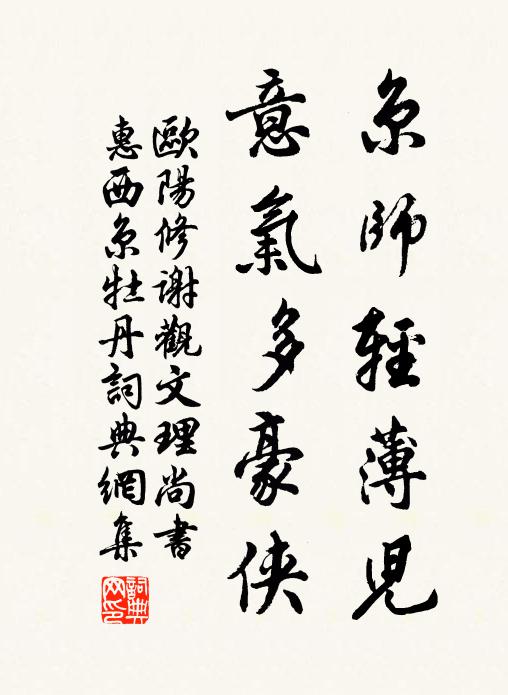 京師輕薄兒
意氣多豪俠
歐陽修謝觀文理尚書
惠西京牡丹詞典網集
詞典
网印